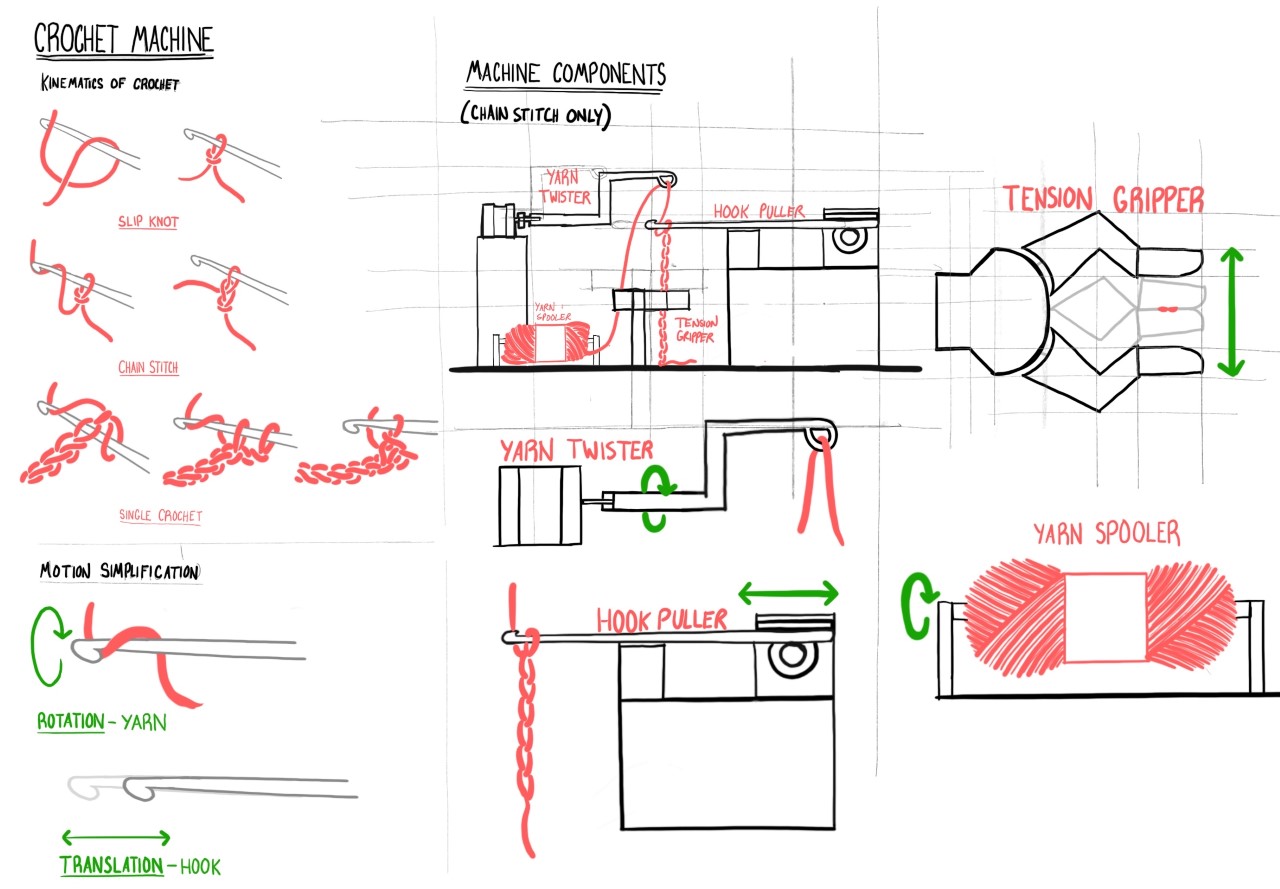 CROCHET MACHINE
KINEMATICS OF CROCHET
SLIP KNOT
CHAIN STITCH
SINGLE CROCHET
MOTION SIMPLIFICATION
ROTATION - YARN
TRANSLATION - HOOK
MACHINE COMPONENTS
(CHAIN STITCH ONLY)
YARN
TWISTER
HOOK PULLER
YARN
SPOOLER
TENSION
GRIPPER
YARN TWISTER
HOOK PULLER
TENSION GRIPPER
YARN SPOOLER